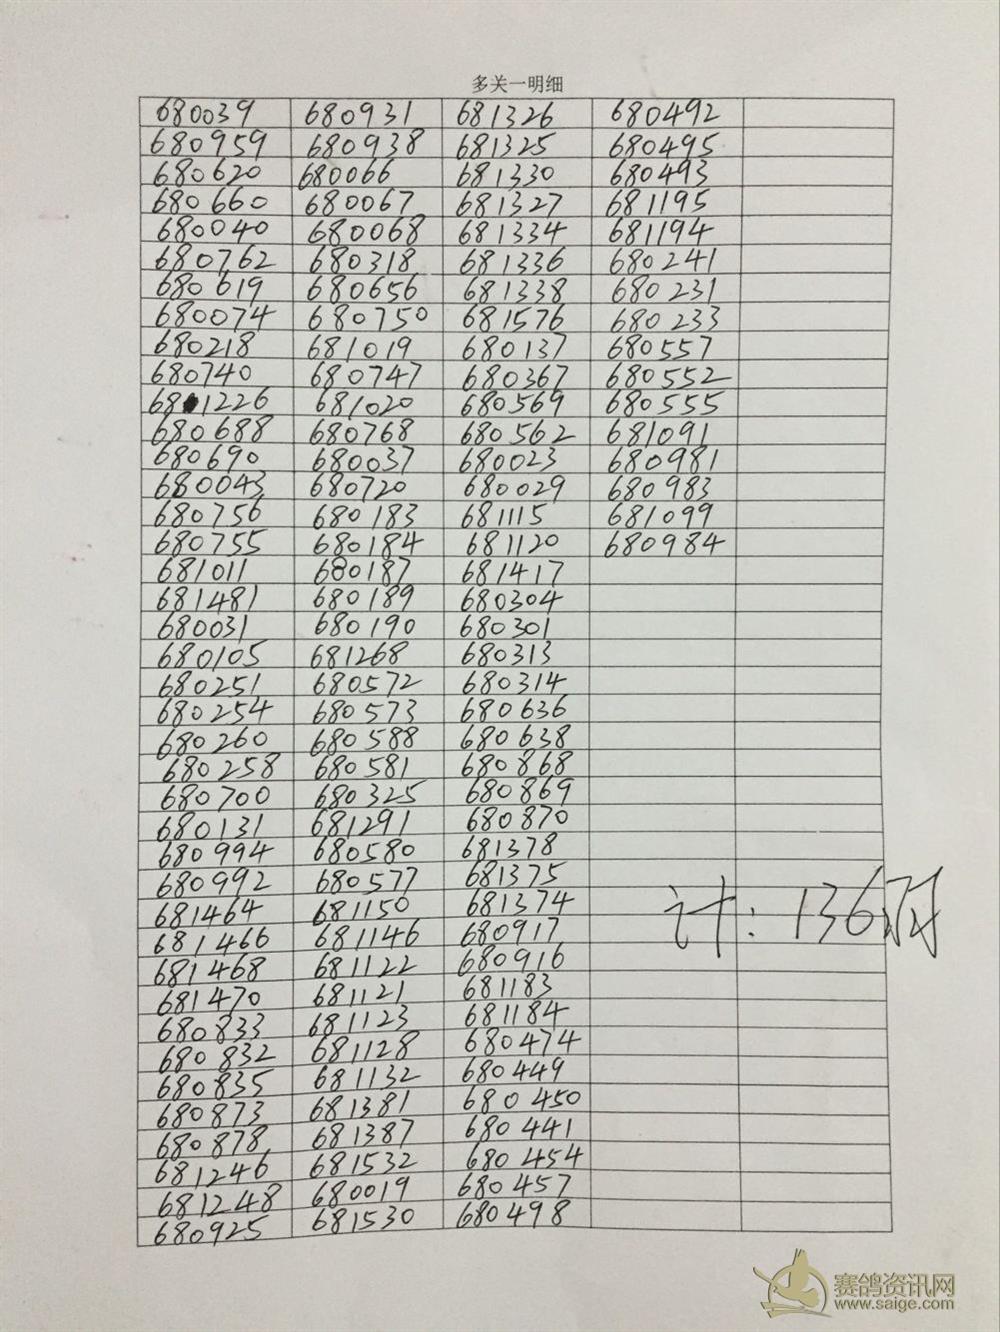 多关一明细
680039 680931 681326 680492
680959 680938 681325 680495
680620 680066 681330 680493
680660 680067 681327 681195
680040 680068 681334 681194
680762 680318 681336 680241
680619 680656 681338 680231
680074 680750 681576 680233
680218 681019 680137 680557
680740 680747 680367 680552
681226 681020 680569 680555
680688 680768 680562 681091
680690 680037 680023 680981
680043 680720 680029 680983
680756 680183 681115 681099
680755 680184 681120 680984
681011 680187 681417
681481 680189 680304
680031 680190 680301
680105 681268 680313
680251 680572 680314
680254 680573 680636
680260 680588 680638
680258 680581 680868
680700 680325 680869
680131 681291 680870
680994 680580 681378
680992 680577 681375
681464 681150 681374
681466 681146 680917
681468 681122 680916
681470 681121 681183
680833 681123 681184
680832 681128 680474
680835 681132 680449
680873 681381 680450
680878 681387 680441
681246 681532 680454
681248 680019 680457
680925 681530 680498
计:136羽
赛鸽资讯网
www.saige.com